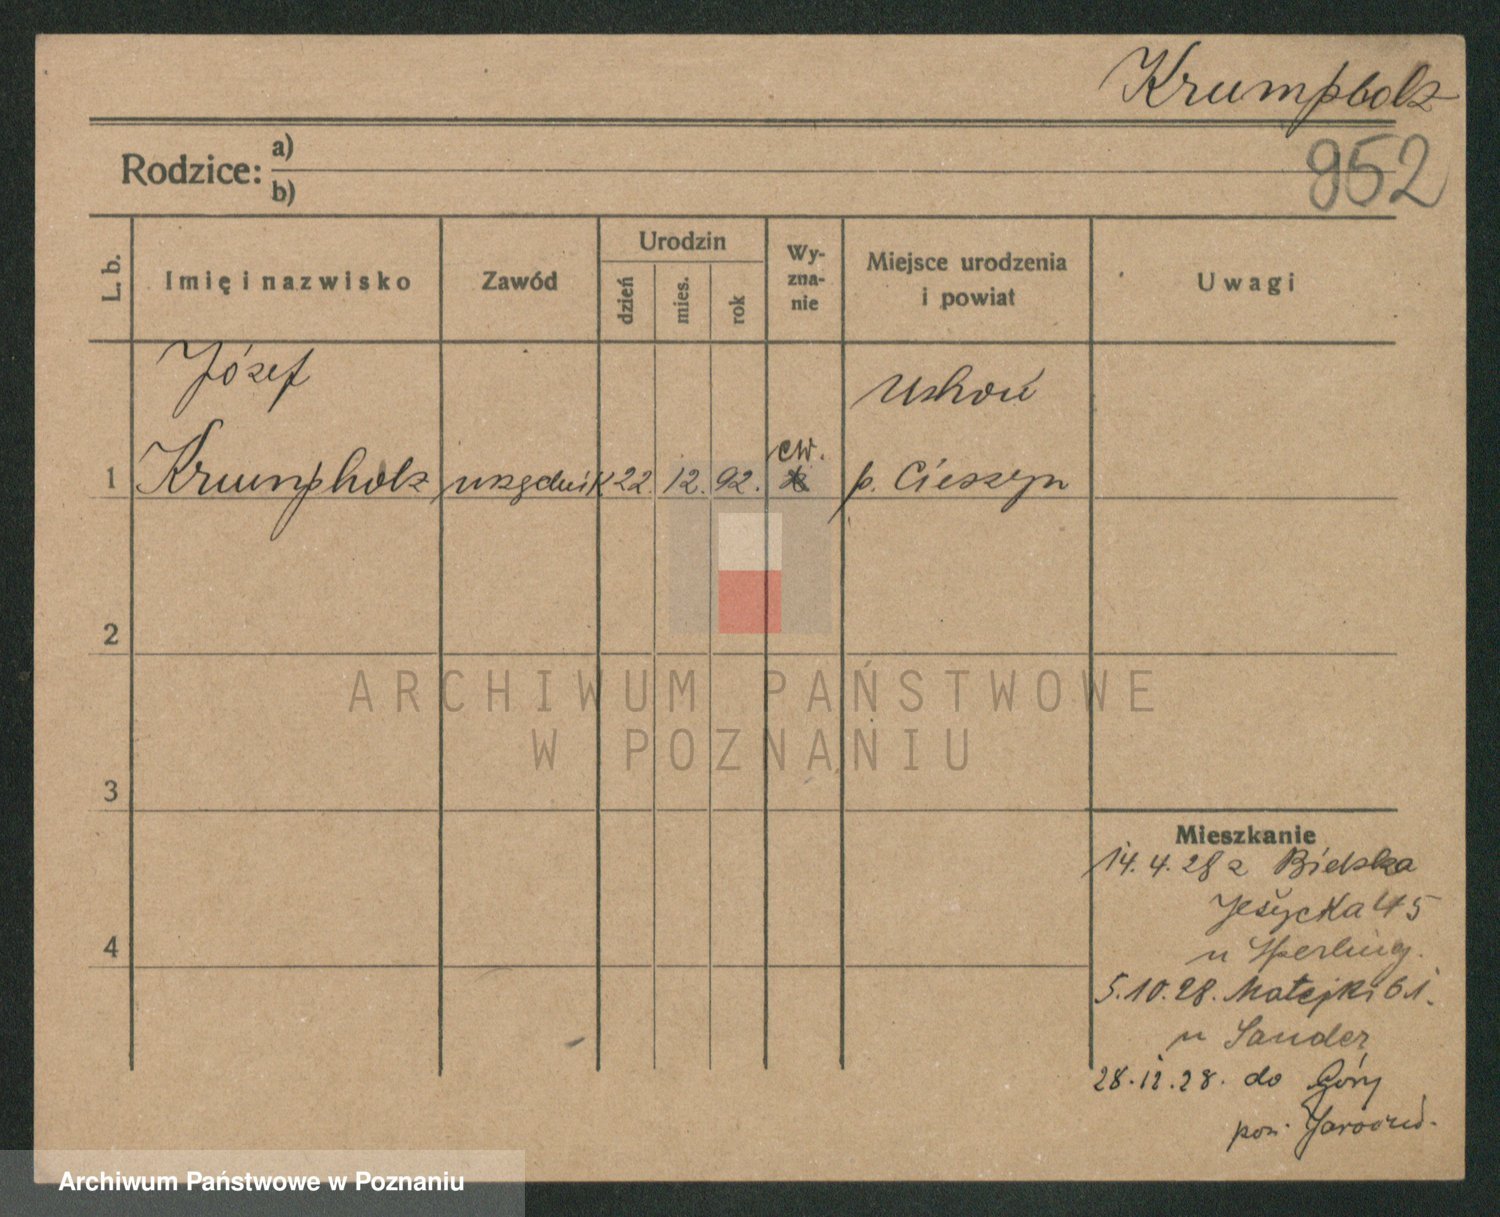 Krumpholz
952
Rodzice: a)
b)
L. b.
Imię i nazwisko
Zawód
Urodzin
dzień
mies.
rok
Wy-
zna-
nie
Miejsce urodzenia
i powiat
Uwagi
Józef
1 Krumpholz urzędnik 22. 12. 92. ew. p. Cieszyn
2
3
4
Mieszkanie
14. 4. 28 z Bielska
Jeżycka 45
u Sperling.
5.10.28. Matejki 61.
u Sander
28.12.28. do Góry
pow. Jarocin.
ARCHIWUM PAŃSTWOWE
W POZNANIU
Archiwum Państwowe w Poznaniu